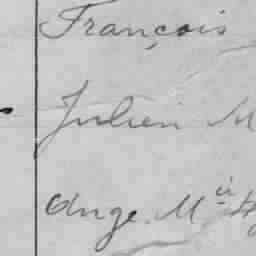 François
Julien M
Ange. M